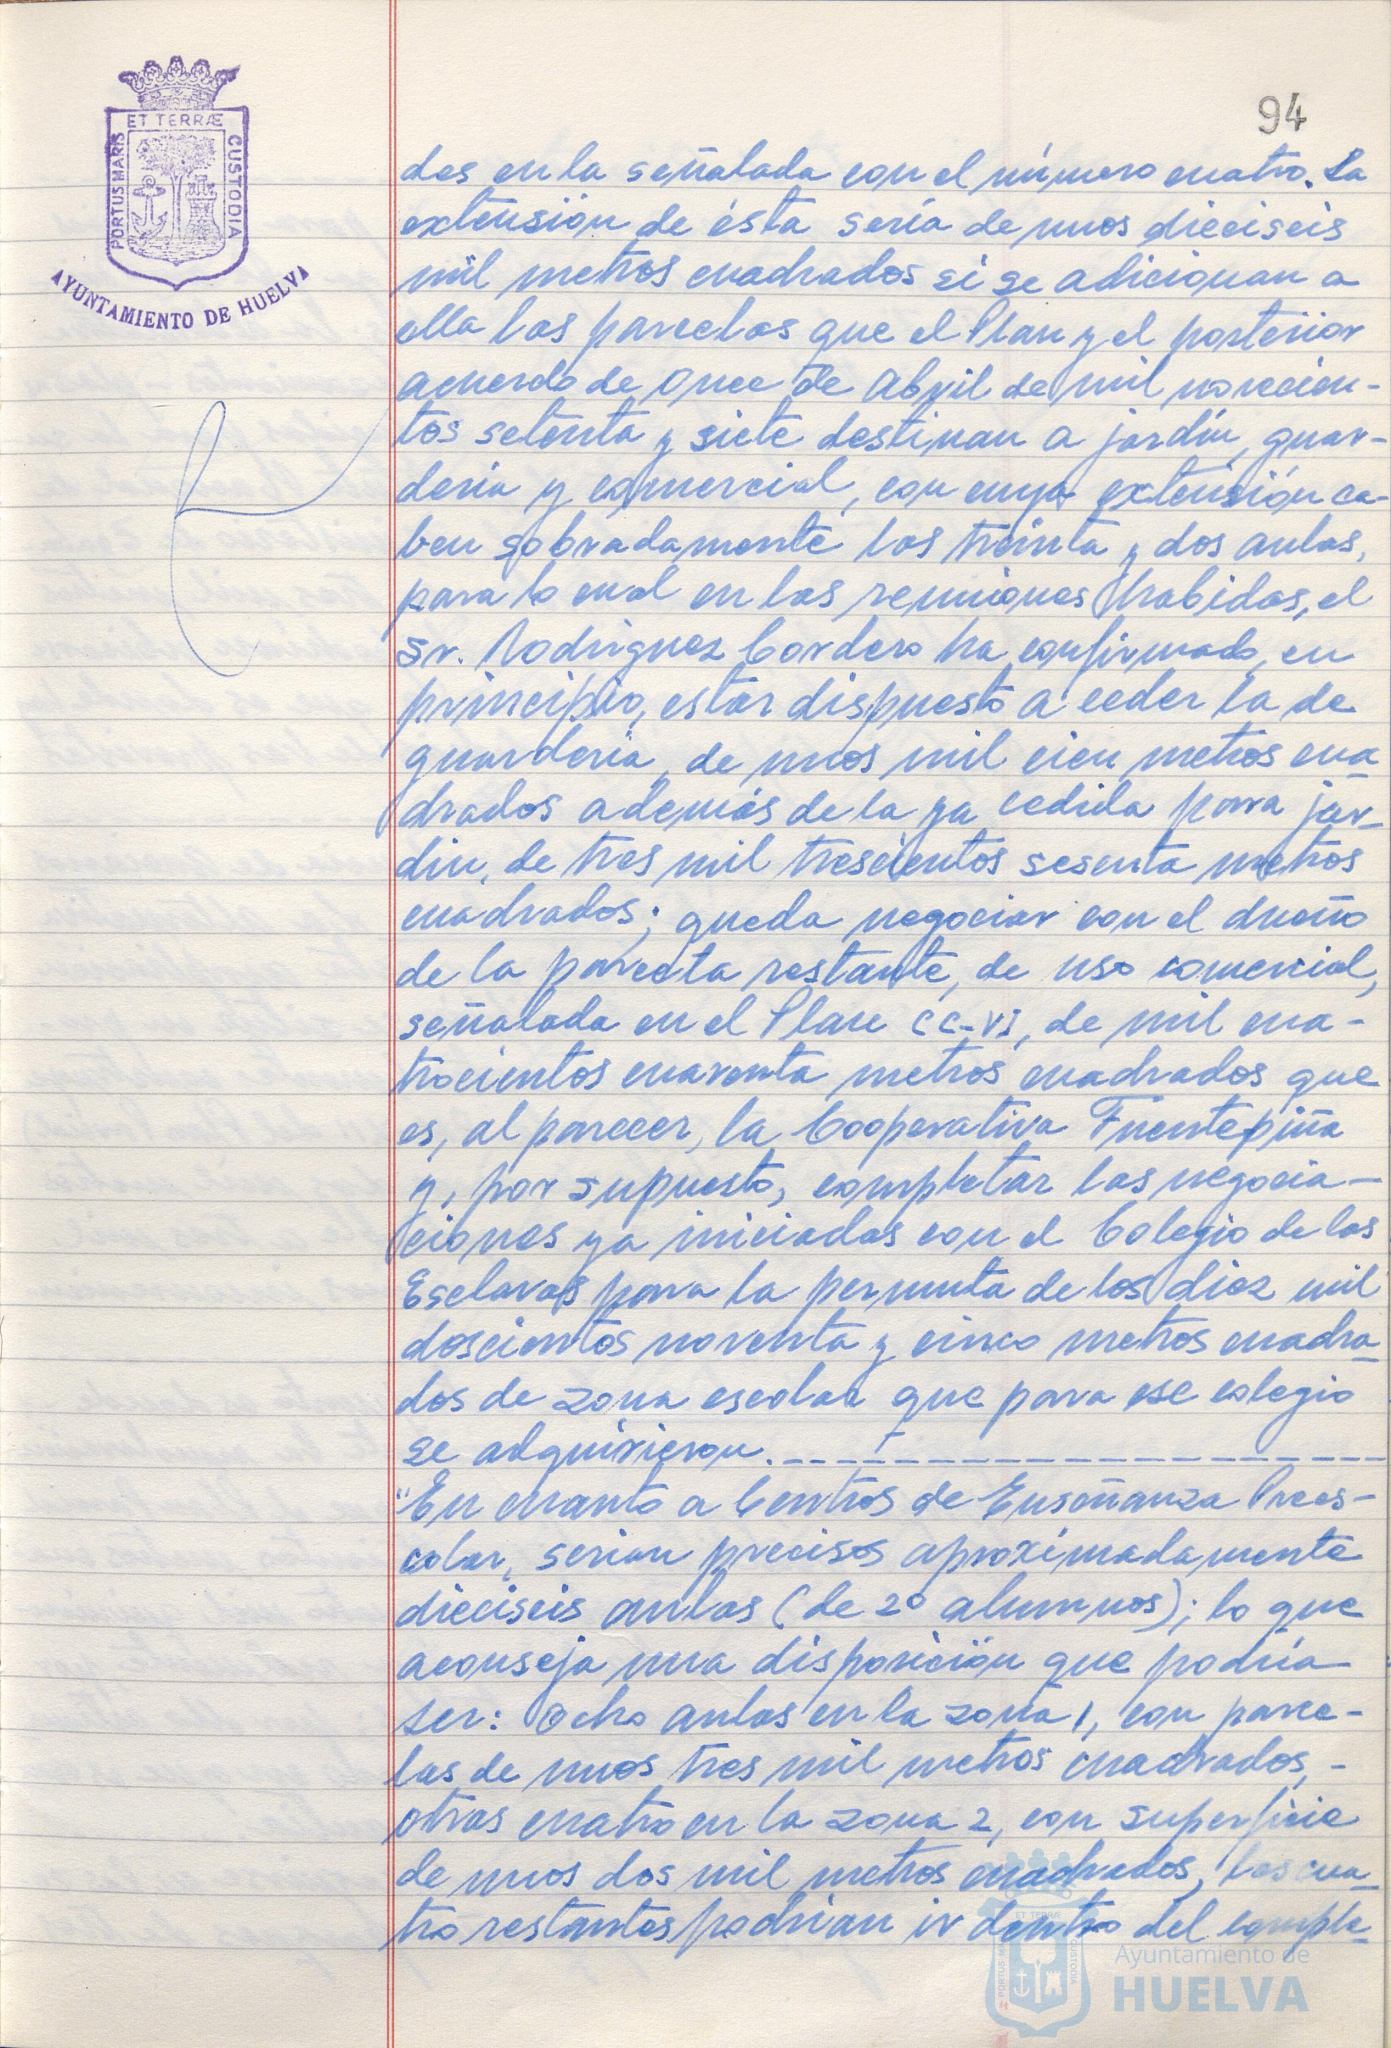 94
ET TERRÆ
PORTUS MARIS
CUSTODIA
AYUNTAMIENTO DE HUELVA
dos en la señalada con el número cuatro. La
extensión de ésta sería de unos dieciseis
mil metros cuadrados si se adicionan a
ella las parcelas que el Plan y el posterior
acuerdo de once de Abril de mil novecien-
tos setenta y siete destinan a jardín, guar-
dería y comercial, con cuya extensión ca-
ben sobradamente las treinta y dos aulas,
para lo cual en las reuniones habidas, el
Sr. Rodríguez Cordero ha confirmado, en
principio, estar dispuesto a ceder la de
guardería, de unos mil cien metros cua
drados además de la ya cedida para jar-
din, de tres mil trescientos sesenta metros
cuadrados; queda negociar con el dueño
de la parcela restante, de uso comercial,
señalada en el Plan CC-VI, de mil cua-
trocientos cuarenta metros cuadrados que
es, al parecer, la Cooperativa Fuentepiña
y, por supuesto, completar las negocia-
ciones ya iniciadas con el Colegio de las
Esclavas para la permuta de los diez mil
doscientos noventa y cinco metros cuadra-
dos de zona escolar que para ese colegio
se adquirieron.
"En cuanto a Centros de Enseñanza Prees-
colar, serían precisos aproximadamente
dieciseis aulas (de 20 alumnos); lo que
aconseja una disposición que podría
ser: Ocho aulas en la zona 1, con parce-
las de unos tres mil metros cuadrados, -
otras cuatro en la zona 2, con superficie
de unos dos mil metros cuadrados, las cua-
tro restantes podrían ir dentro del comple-
Ayuntamiento de
HUELVA